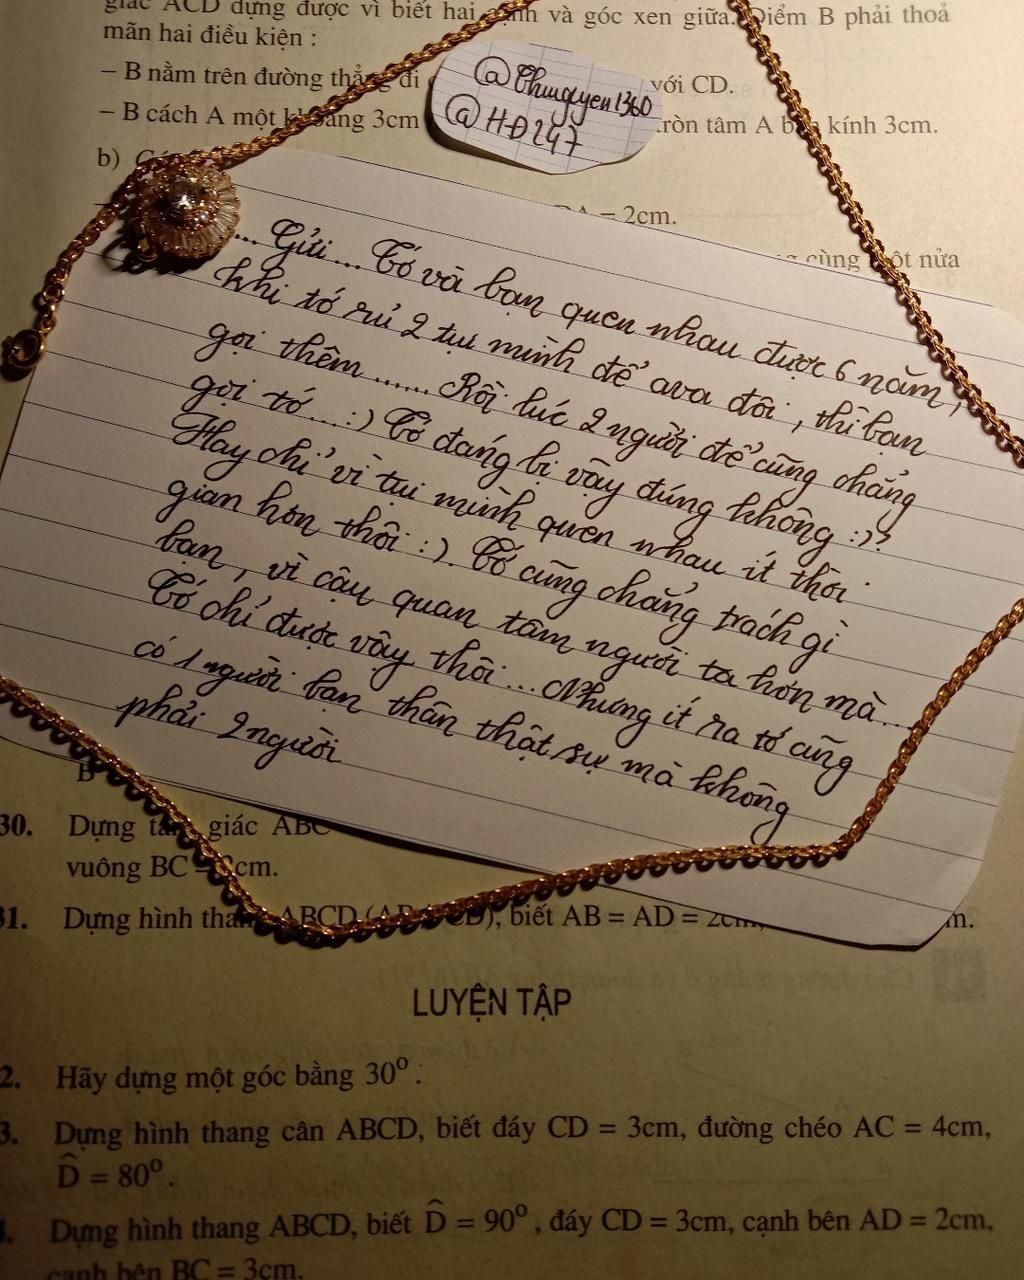 giác ACD dựng được vì biết hai cạnh và góc xen giữa. Điểm B phải thoả
mãn hai điều kiện :
– B nằm trên đường thẳng đi với CD.
– B cách A một khoảng 3cm tròn tâm A bán kính 3cm.
@Thunguyen1360
@HĐ247
b)
DA = 2cm.
cùng một nửa
... Gửi... Tớ và bạn quen nhau được 6 năm,
khi tớ rủ 2 tụi mình để ava đôi, thì bạn
gọi thêm ...... Rồi lúc 2 người để cũng chẳng
gọi tớ...:) Tớ đang bị vậy đúng không :)?
Hay chỉ vì tụi mình quen nhau ít thời
gian hơn thôi :). Tớ cũng chẳng trách gì
bạn, vì cậu quan tâm người ta hơn mà...
Tớ chỉ được vậy thôi... Nhưng ít ra tớ cũng
có 1 người bạn thân thật sự mà không
phải 2 người
B
30. Dựng tam giác ABC
vuông BC = cm.
31. Dựng hình thang ABCD (AB // CD), biết AB = AD = 2cm, m.
LUYỆN TẬP
2. Hãy dựng một góc bằng 30°.
3. Dựng hình thang cân ABCD, biết đáy CD = 3cm, đường chéo AC = 4cm,
D̂ = 80°.
Dựng hình thang ABCD, biết D̂ = 90°, đáy CD = 3cm, cạnh bên AD = 2cm,
cạnh bên BC = 3cm.